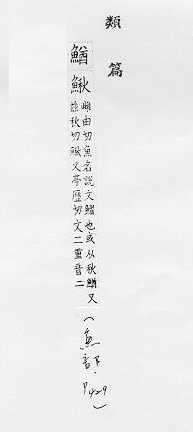 類篇
鰌鰍
由切魚名說文鰼也或从秋鰌又
秋切鰍又亭歷切文二重音二
(魚部.P429)